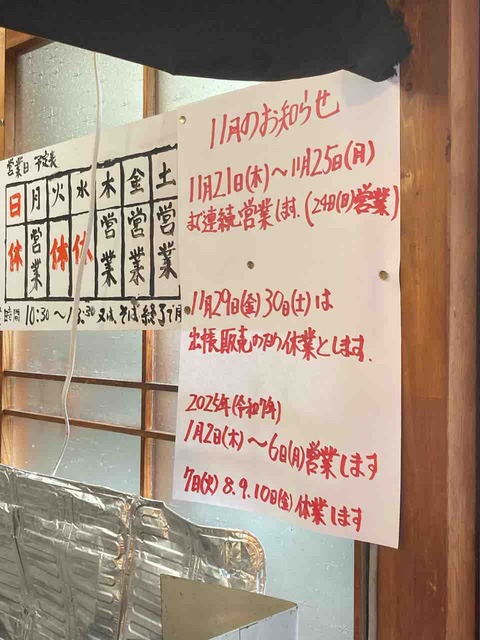 営業日 予定表
日 月 火 水 木 金 土
休 営業 休 休 営業 営業 営業
時間 10:30～13:30 又は、そば終了で
11月のお知らせ
11月21日(木)～11月25日(月)
まで連続営業します。(24日(日)営業)
11月29日(金)30日(土)は
出張販売のため休業とします。
2025年(令和7年)
1月2日(木)～6日(月)営業します
7日(火) 8. 9. 10日(金) 休業します